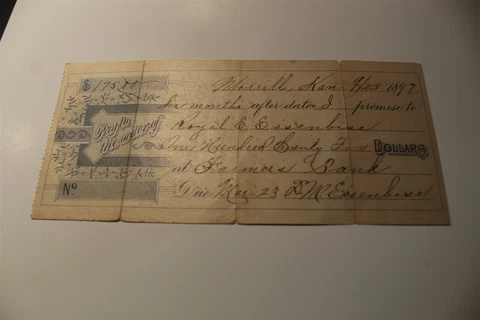 $ 175.00
Morrill, Kan 9/23 1897
Six months after date I promise to
Pay to
the order of
Royal E Essenbise
One Hundred Seventy Five DOLLARS
at Farmers Bank
No
Due Mar 23 D M Essenbise